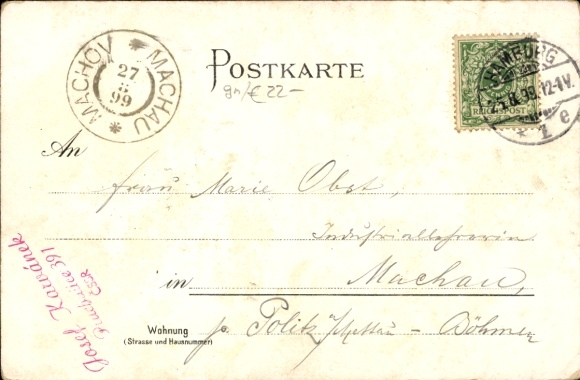 MACHOV * MACHAU *
27
8
99
POSTKARTE
gn/€ 22-
HAMBURG
25.8.99.12-1V.
* 1 e
REICHSPOST
An
Frau Marie Obst,
Industriallehrerin
in Machau,
Wohnung
(Strasse und Hausnummer)
p. Politz /Mettau - Böhmen
Josef Kaválek
391
ČSR